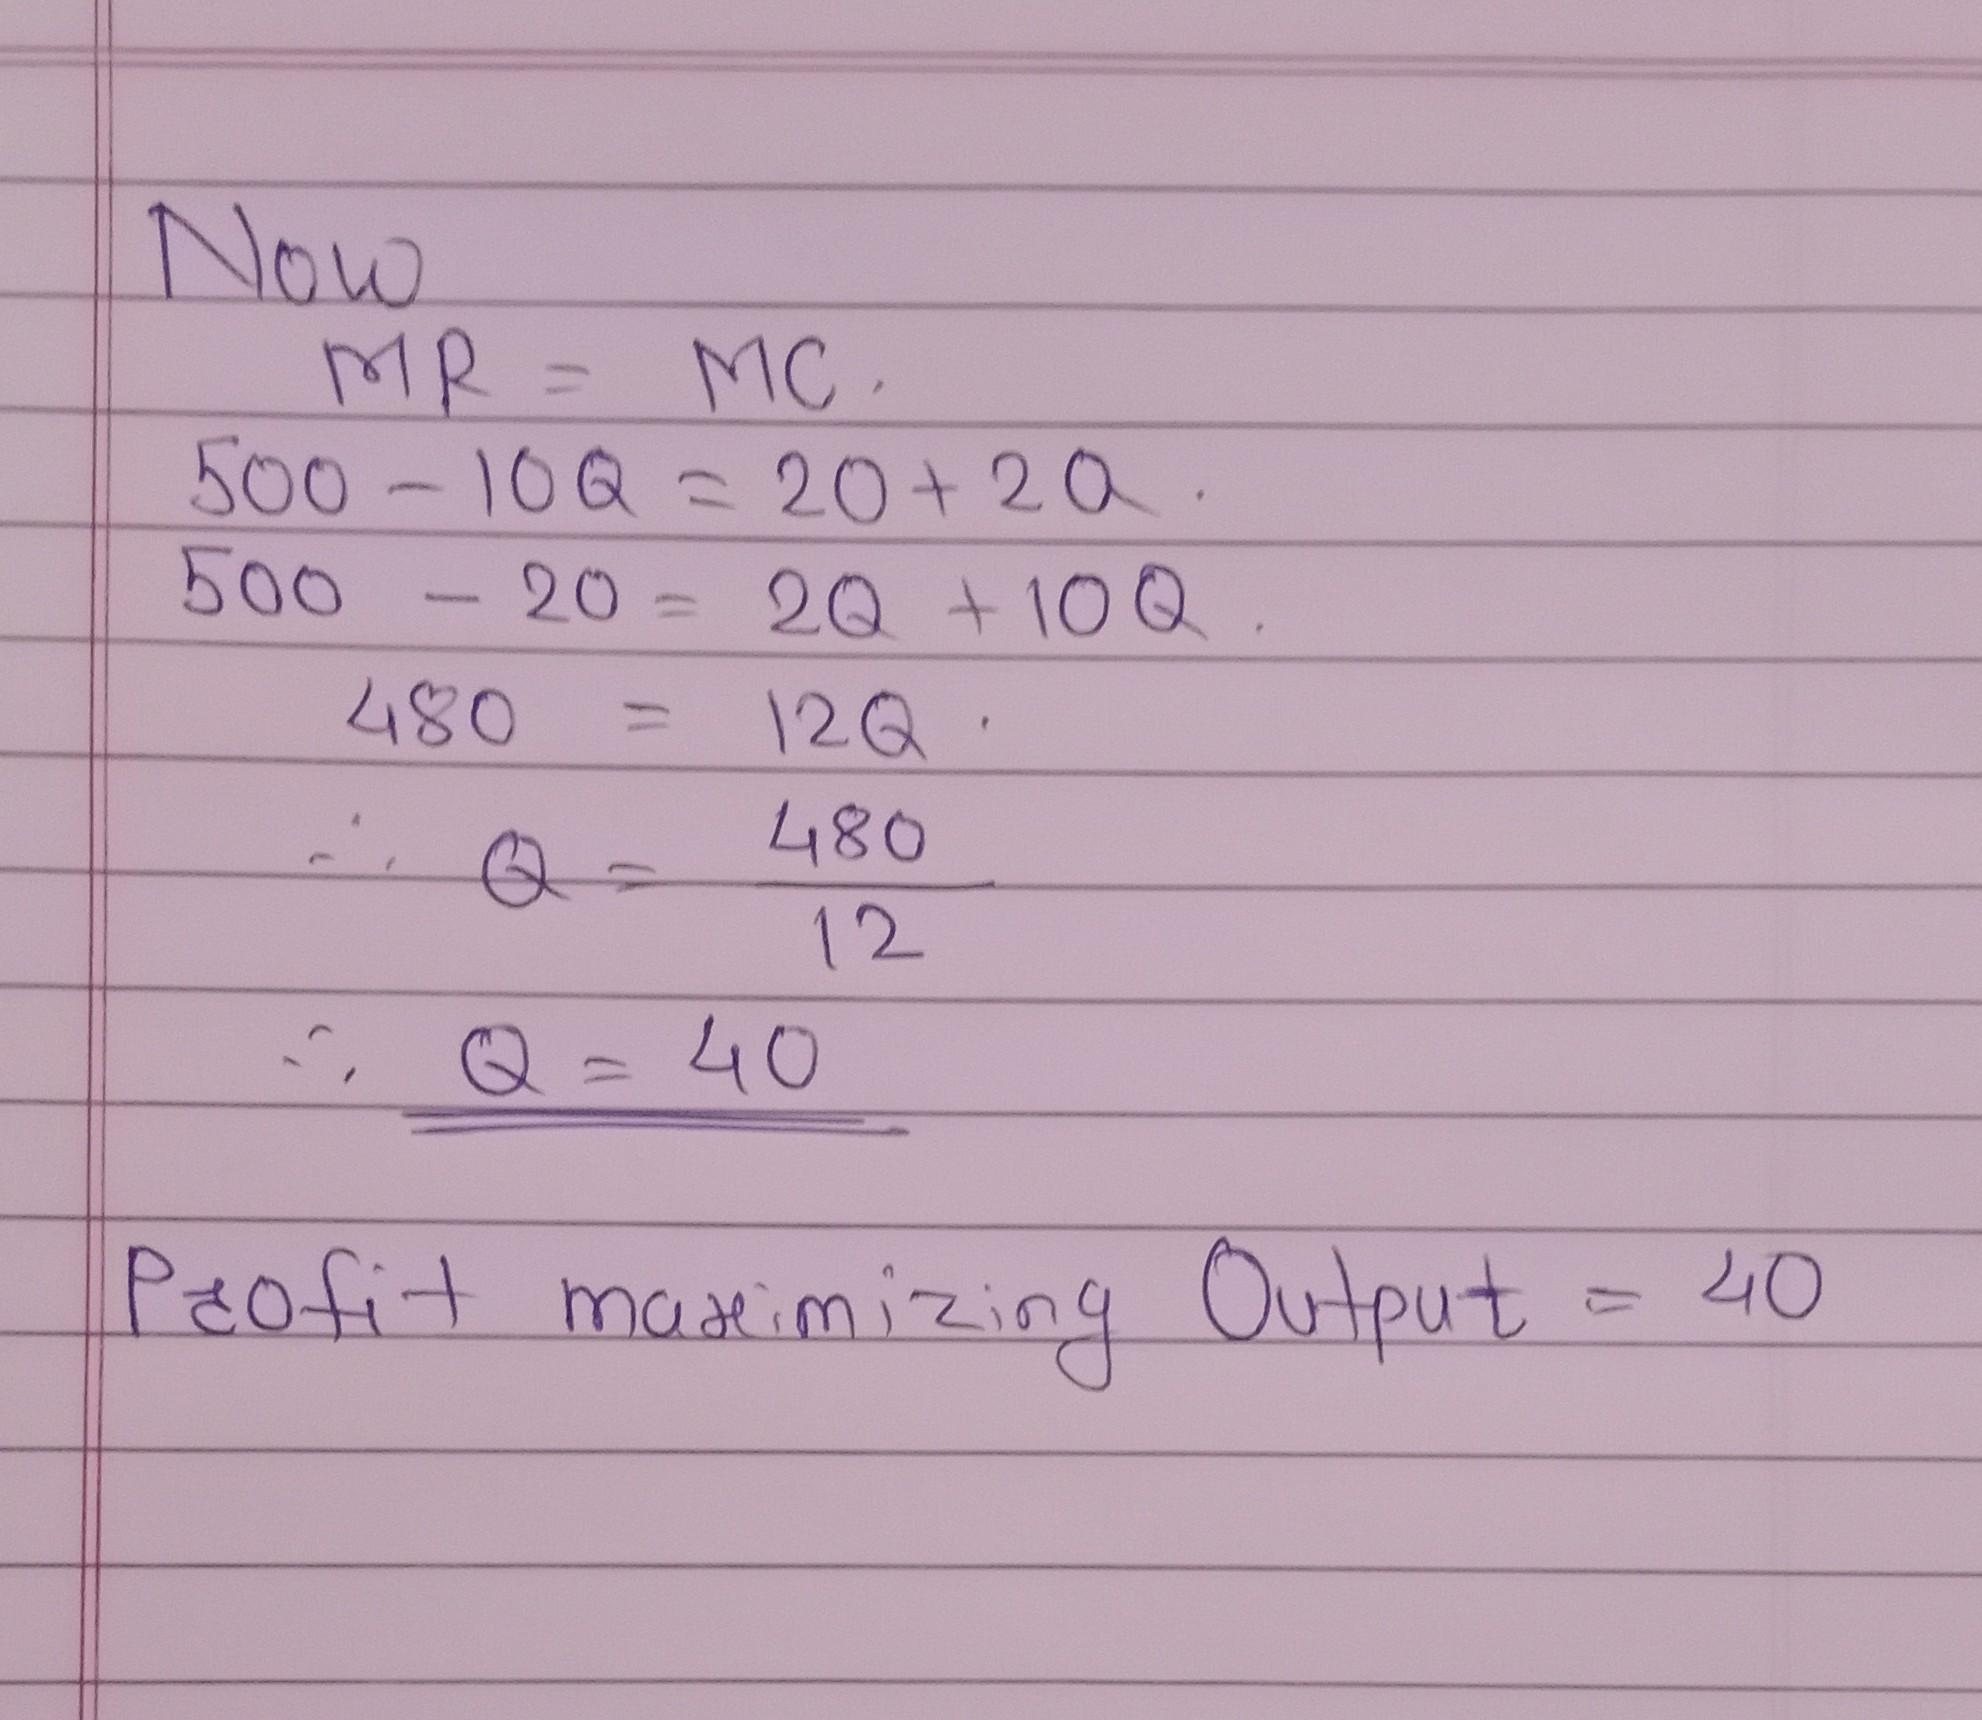 Now
MR = MC.
500 - 10Q = 20 + 2Q.
500 - 20 = 2Q + 10Q.
480 = 12Q.
∴ Q = 480
12
∴ Q = 40
Profit maximizing Output = 40